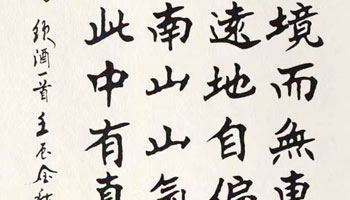 境而無車
遠地自偏
南山山氣
此中有真
飲酒一首壬辰金秋